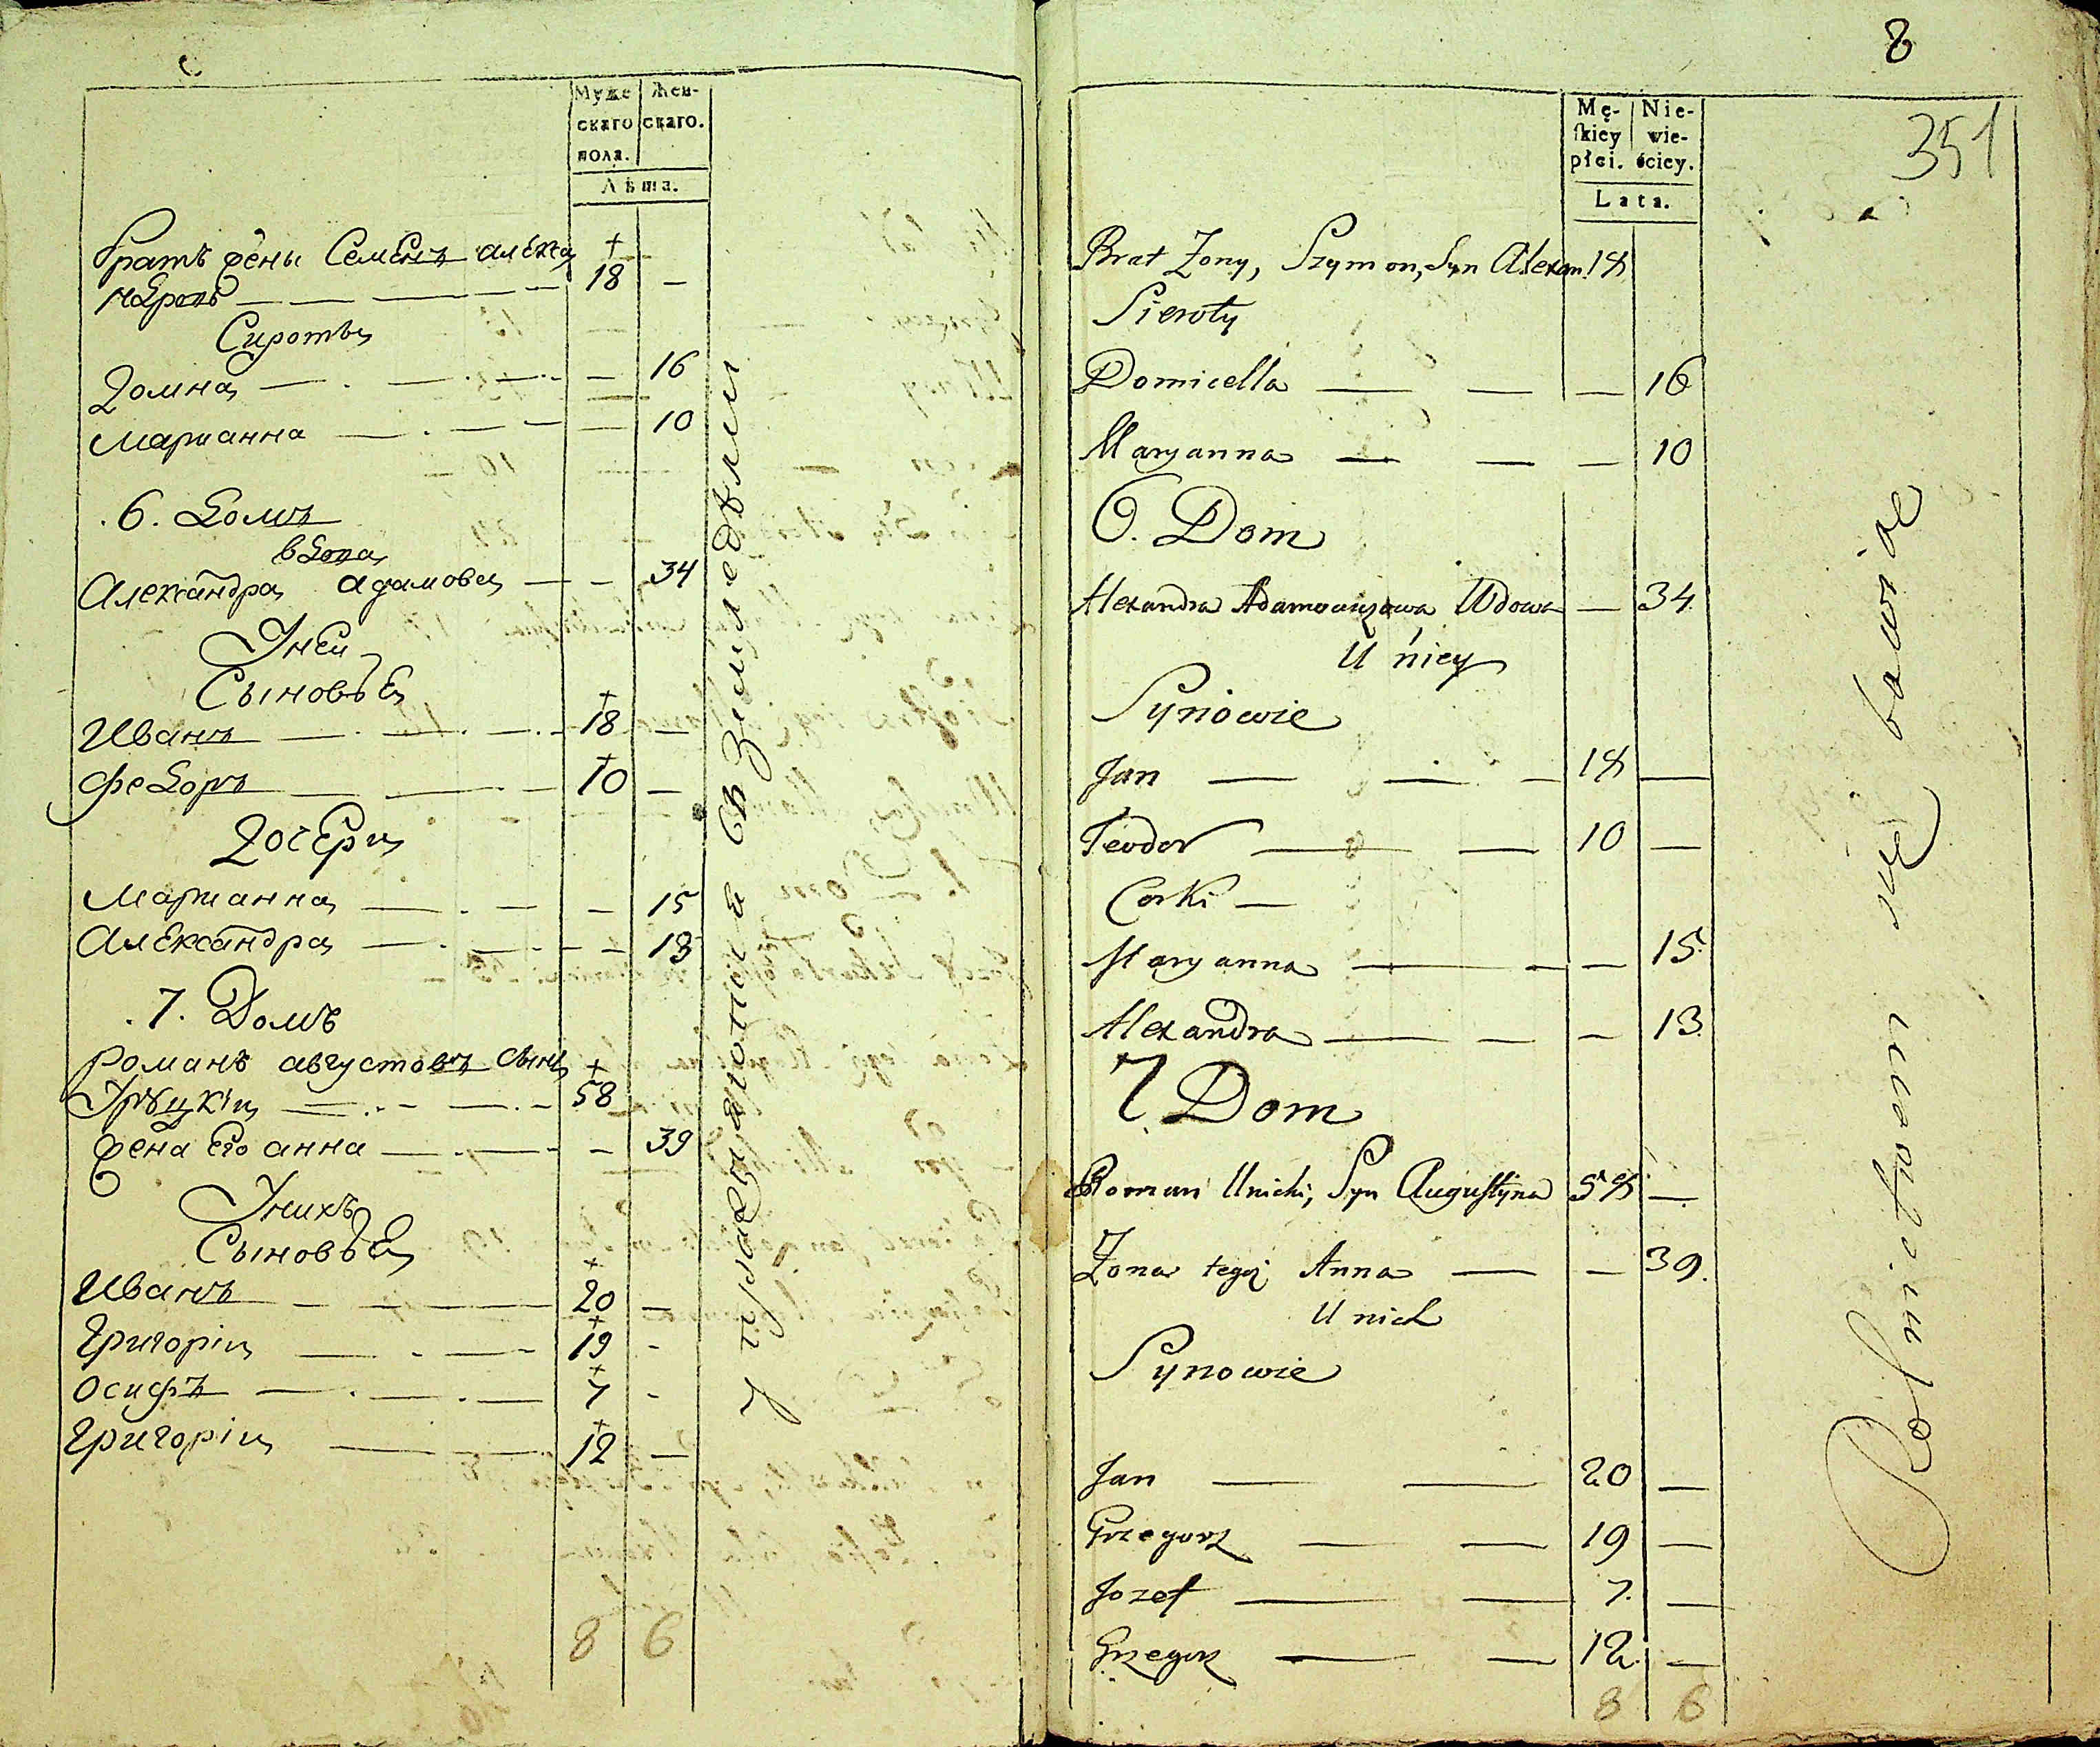 Муже
скаго
пола.
Жен-
скаго.
Лѣта.
братъ жены Семенъ алекса
18 —
Сироты
Домна — — — — 16
марианна — — — — 10
.6. Домъ
вдова
Александра адамова — — 34
У неи
Сыновья
Иванъ — — — 18 —
Федоръ — — — 10 —
Дочери
Марианна — — — 15
Александра — — — — 13
.7. Домъ
Романъ августовъ сынъ
58
жена его анна — — — — 39
У нихъ
Сыновья
Иванъ — — — 20 —
Григоріи — — — 19 -
осифъ — — — 7 -
Григоріи — — — 12 —
8 6
съ земледѣлия
8
351
Mę-
skiey
płci.
Nie-
wie-
ściey.
Lata.
Brat Zony, Szymon, Syn Alexan. 18
Sieroty
Domicella — — — 16
Maryanna — — — 10
6. Dom
Alexandra Adamowiczowa Wdowa — 34.
U niey
Synowie
Jan — — — 18 —
Teodor — — 10 —
Corki —
Maryanna — — — 15.
Alexandra — — — 13
7. Dom
Roman Unicki, Syn Augustyna 58 —
Zona tegoż Anna — — 39.
U nich
Synowie
Jan — — 20 —
Grzegorz — — 19 —
Jozef — — 7. —
Grzegorz — — 12. —
8 6
Rolnictwem się bawiąc